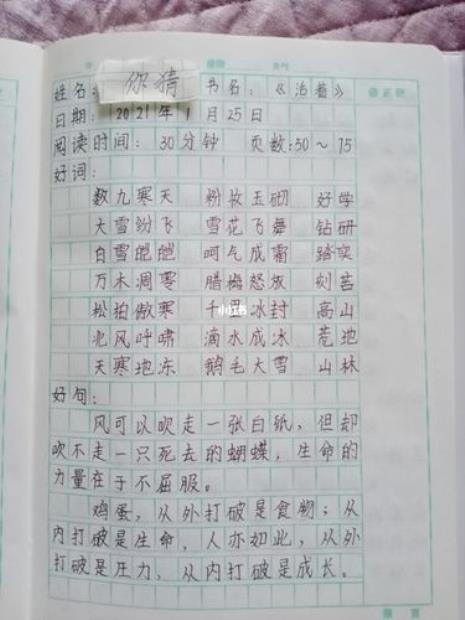 姓名: 你猜 书名:《活着》
日期: 2021年1月25日
阅读时间: 30分钟 页数:50~75
好词:
数九寒天 粉妆玉砌 好学
大雪纷飞 雪花飞舞 钻研
白雪皑皑 呵气成霜 踏实
万木凋零 腊梅怒放 刻苦
松柏傲寒 千里冰封 高山
北风呼啸 滴水成冰 荒地
天寒地冻 鹅毛大雪 山林
好句:
风可以吹走一张白纸,但却
吹不走一只死去的蝴蝶,生命的
力量在于不屈服。
鸡蛋,从外打破是食物;从
内打破是生命,人亦如此,从外
打破是压力,从内打破是成长。